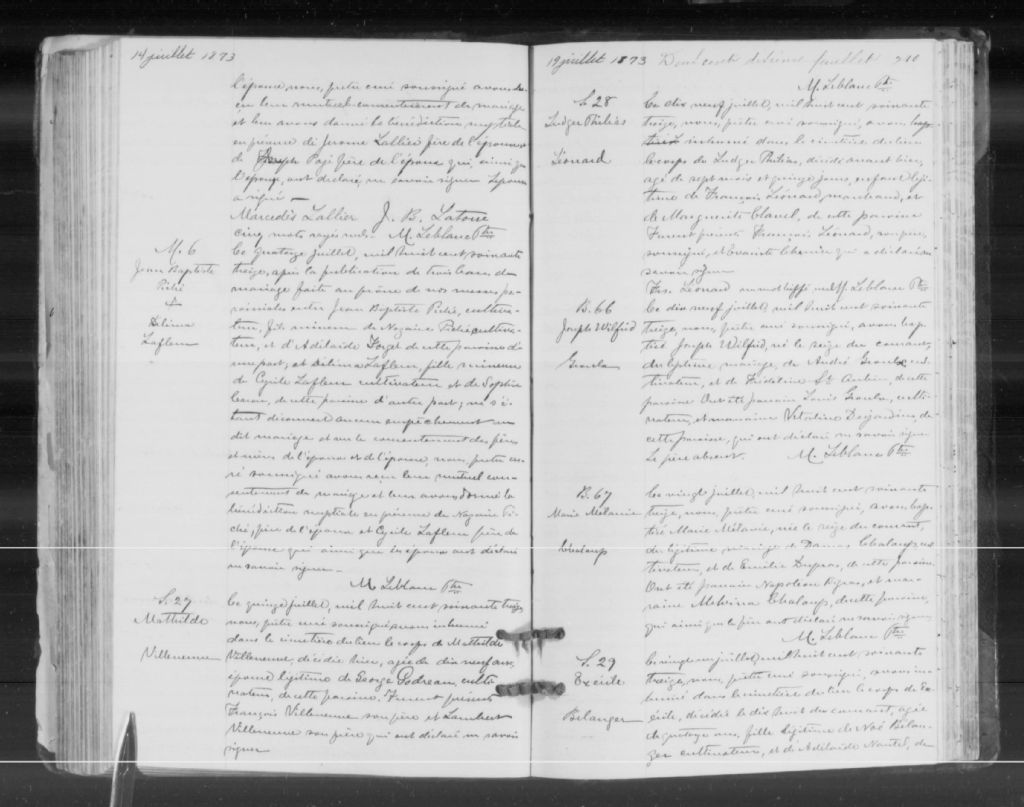 14 juillet 1873
l'épouse, nous, prêtre curé soussigné avons re-
çu leur mutuel consentement de mariage
et leur avons donné la bénédiction nuptiale
en présence de Jerome Lallier frère de l'époux
de Joseph Pagé frère de l'épouse qui, ainsi que
l'épouse, ont déclaré ne savoir signer L'époux
a signé —
Marcedès Lallier J. B. Latour
cinq mots rayés nuls. M. Leblanc Ptre
M. 6
Jean Baptiste
Piché
+
Délima
Lafleur
Ce quatorze juillet, mil huit cent soixante
treize, après la publication de trois bans de
mariage faite au prône de nos messes pa-
roissiales entre Jean Baptiste Piché, cultiva-
teur, fils mineur de Nazaire Piché cultiva-
teur, et d'Adelaide Forget de cette paroisse d'
une part; et Délima Lafleur, fille mineure
de Cyrile Lafleur cultivateur et de Sophie
de cette paroisse d'autre part; ne s'é-
tant découvert aucun empêchement au
dit mariage et sur le consentement des pères
et mères de l'époux et de l'épouse, nous, prêtre cu-
ré soussigné avons reçu leur mutuel con-
sentement de mariage et leur avons donné la
bénédiction nuptiale en présence de Nazaire Pi-
ché, père de l'époux et Cyrile Lafleur père de
l'épouse qui ainsi que les époux ont déclaré
ne savoir signer —
M. Leblanc Ptre
S. 27
Mathilde
Villeneuve
Ce quinze juillet, mil huit cent soixante treize,
nous, prêtre curé soussigné avons inhumé
dans le cimetière du lieu le corps de Mathilde
Villeneuve, décédée hier, agée de dix neuf ans,
épouse légitime de George Godreau, culti-
vateur, de cette paroisse. Furent présents
François Villeneuve son père et Lambert
Villeneuve son frère qui ont déclaré ne savoir
signer
19 juillet 1873 feuillet
M. Leblanc Ptre
S. 28
Ludger Philias
Léonard
Ce dix neuf juillet, mil huit cent soixante
treize, nous, prêtre curé soussigné, avons bap-
tisé inhumé dans le cimetière du lieu
le corps de Ludger Philias, décédé avant hier,
agé de sept mois et quinze jours, enfant légi-
time de François Léonard, marchand, et
de Marguerite Clanel, de cette paroisse
Furent présents François Léonard, son père,
soussigné, et qui a déclaré ne
savoir signer
Frs. Léonard un mot biffé nul M. Leblanc Ptre
B. 66
Joseph Wilfrid
Groulx
Ce dix neuf juillet, mil huit cent soixante
treize, nous, prêtre curé soussigné, avons bap-
tisé Joseph Wilfrid, né le seize du courant,
du légitime mariage, de André Groulx cul-
tivateur, et de St. Aubin, de cette
paroisse Ont été parrain Louis Groulx, culti-
vateur, et marraine Vitaline Desjardins, de
cette paroisse, qui ont déclaré ne savoir signer
Le père absent. M. Leblanc Ptre
B. 67
Marie Mélanie
Chaloup
Ce vingt juillet, mil huit cent soixante
treize, nous, prêtre curé soussigné, avons bap-
tisé Marie Mélanie, née le seize du courant,
du légitime mariage de Damas Chaloup, cul-
tivateur, et de Emilie Dupras, de cette paroisse.
Ont été parrain Napoléon Dupras, et mar-
raine Melvina Chaloup, de cette paroisse,
qui ainsi que le père ont déclaré ne savoir signer
M. Leblanc Ptre
S. 29
Exeile
Belanger
Ce vingt un juillet, mil huit cent soixante
treize, nous, prêtre curé soussigné, avons in-
humé dans le cimetière du lieu le corps de Ex-
eile, décédée le dix huit du courant, agée
de quatorze ans, fille légitime de Noé Bélan-
ger cultivateur, et de Adelaide Nantel, de